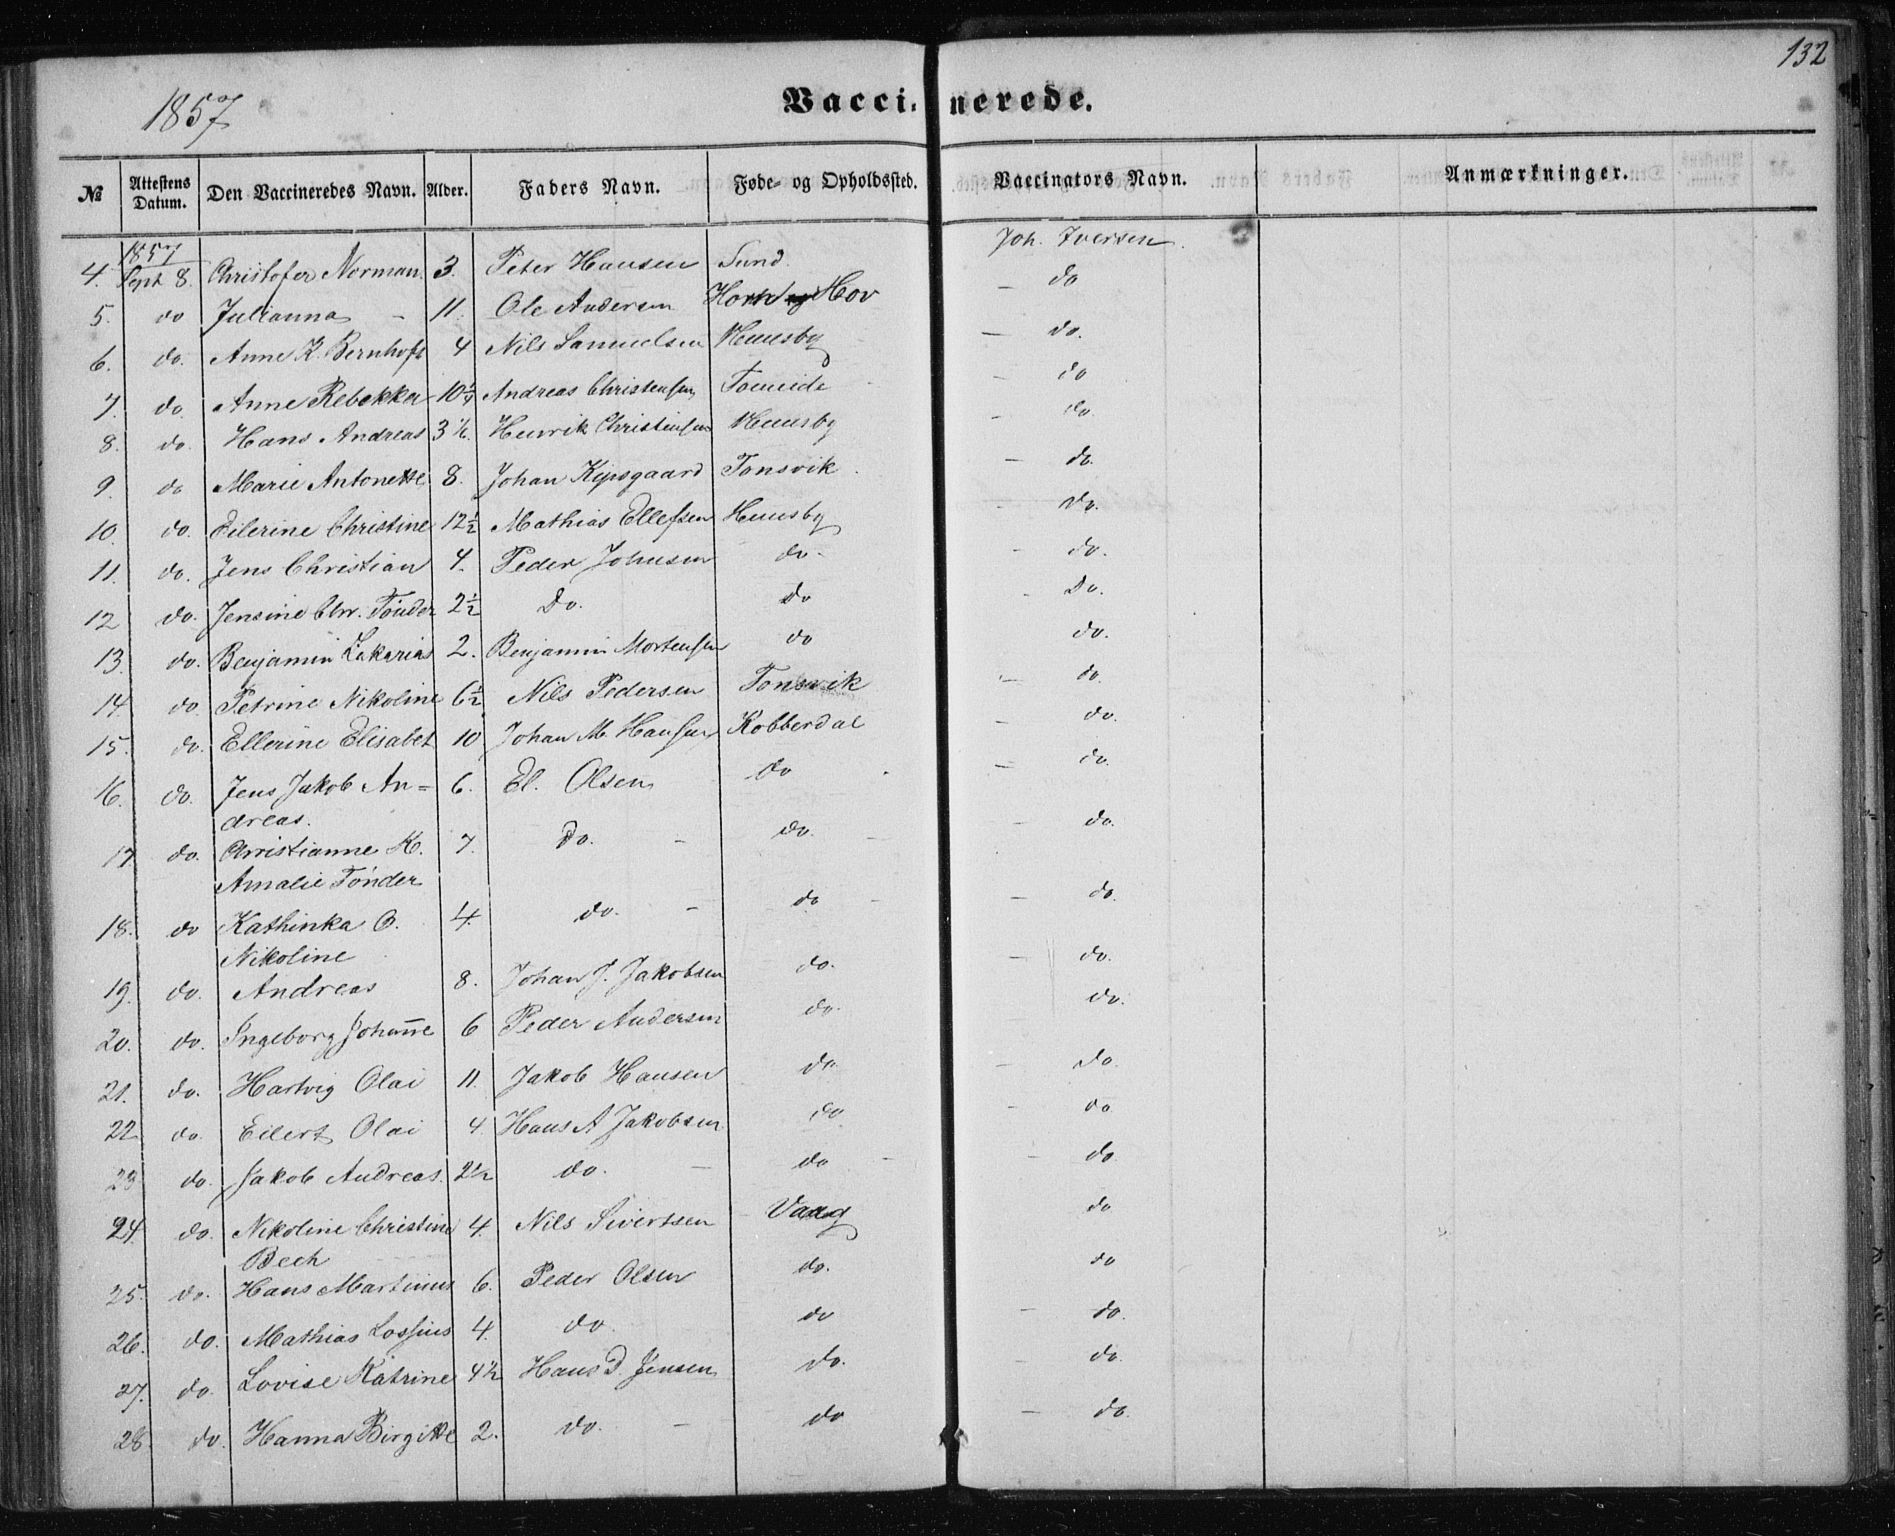 132
1857
Vaccinerede.
№ Attestens Datum. Den Vaccineredes Navn. Alder. Faders Navn. Føde- og Opholdssted. Vaccinators Navn. Anmærkninger.
1857
4. Sept 8. Christofer Norman 3. Peter Hansen Sund. Joh. Iversen.
5. do Julianna - 11. Ole Andersen Hov - do
6. do. Anne K. Bernhoft 4 Nils Samuelsen Huusby - do.
7. do. Anne Rebekka 10 Andreas Christensen - do
8. do. Hans Andreas 3 Henrik Christensen Huusby - do.
9. do Marie Antonette 8. Johan Tonsvik - do.
10. do. Eilerine Christine 12½ Mathias Ellefsen Huusby do.
11. do. Jens Christian 4. Peder Johnsen do. - do.
12 do. Jensine Chr. Tönder 2½ Do. do - Do.
13. do. Benjamin Zakarias 2. Benjamin Mortensen do do.
14. do. Petrine Nikoline 6½ Nils Pedersen Tonsvik - do.
15. do. Ellerine Elisabet 10 Johan M. Hansen Kobberdal - do.
16. do. Jens Jakob An= 6. El. Olsen do - do.
dreas.
17. do. Christianne K. 7. Do. - do. - - do.
Amalie Tönder
18. do Kathinka O. 4. do. - do - - do.
Nikoline
19. do. Andreas 8. Johan J. Jakobsen do. - do.
20. do. Ingeborg Johanne 6 Peder Andersen do. - do.
21. do. Hartvig Olai 11. Jakob Hansen do. - do.
22 do. Eilert Olai 4. Hans A Jakobsen do - do
23 do. Jakob Andreas. 2½ do. - do - - do
24. do. Nikoline Christine 4. Nils Sivertsen Vaag do
Bech
25. do. Hans Martinus 6. Peder Olsen do. do
26. do. Mathias Lossius 4. do do - do.
27. do. Lovise Katrine 4½ Hans P. Jensen do. - do.
28. do. Hanna Birgitte 2. do. - do - do.